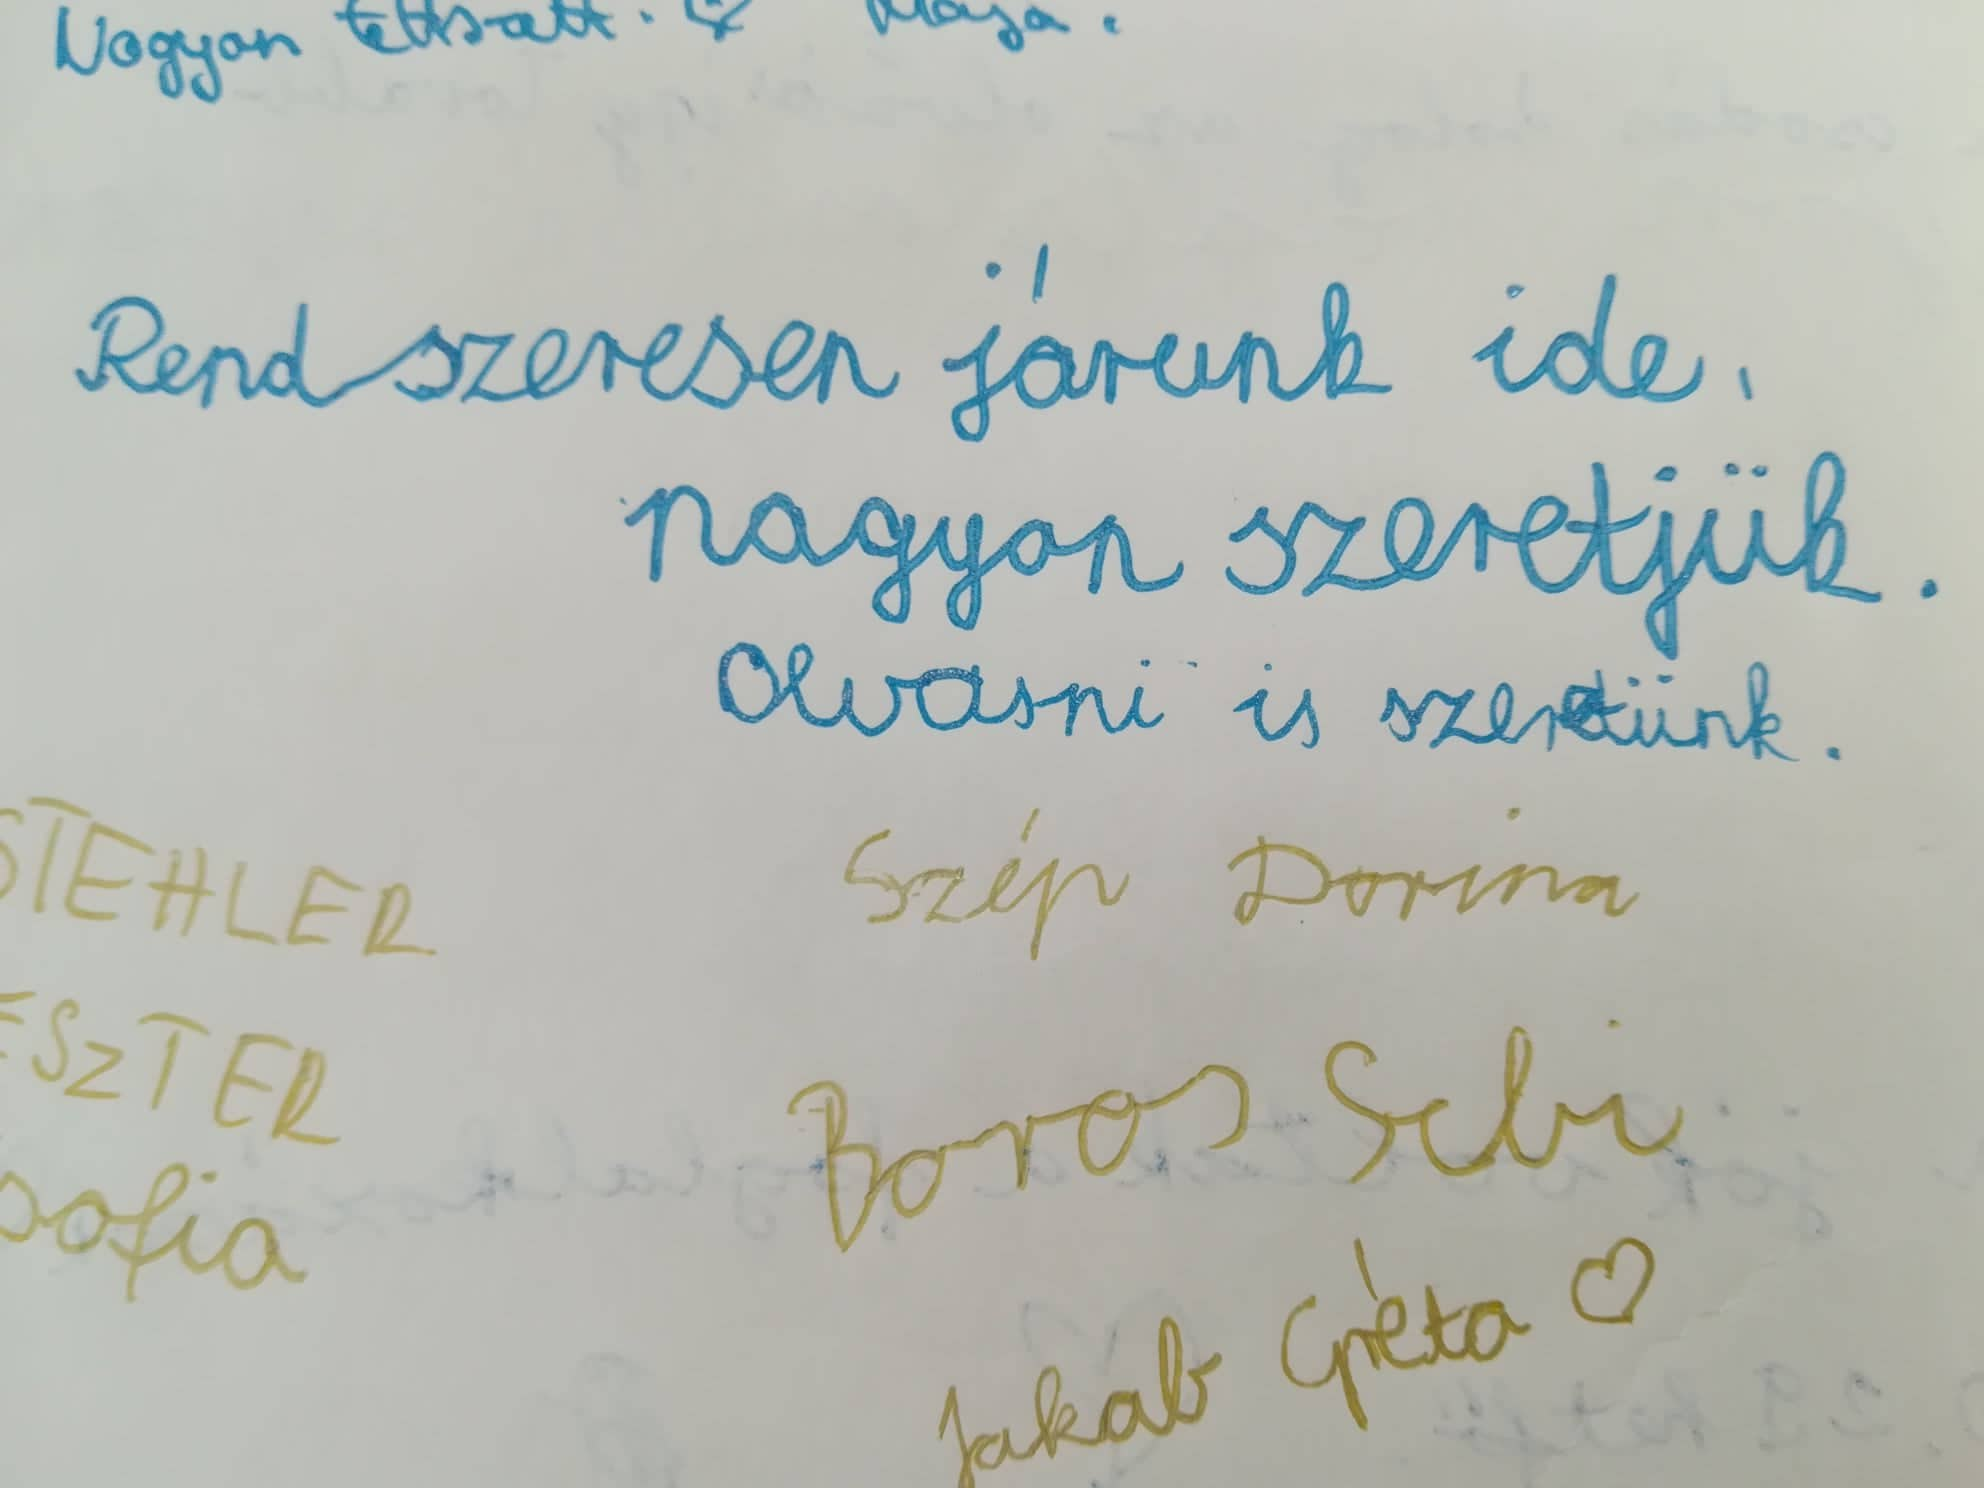 Nagyon tettszett. Maja.
Rendszeresen járunk ide,
nagyon szeretjük.
Olvasni is szeretünk.
STEHLER
Szép Dorina
ESZTER
Boros Sebi
Sofia
Jakab Gréta ♡